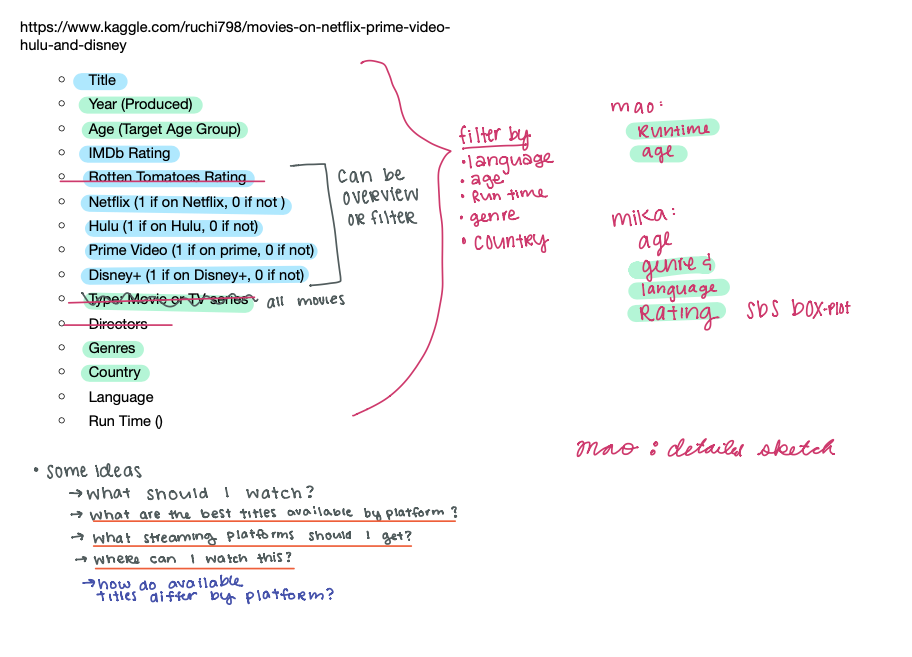 https://www.kaggle.com/ruchi798/movies-on-netflix-prime-video-
hulu-and-disney
Title
Year (Produced)
Age (Target Age Group)
IMDb Rating
Rotten Tomatoes Rating
Netflix (1 if on Netflix, 0 if not )
Hulu (1 if on Hulu, 0 if not)
Prime Video (1 if on prime, 0 if not)
Disney+ (1 if on Disney+, 0 if not)
Type: Movie or TV series
all movies
Directors
Genres
Country
Language
Run Time ()
can be
overview
or filter
filter by
• language
• age
• Run time
• genre
• country
mao:
Runtime
age
mika:
age
genre &
language
Rating
SbS box-plot
mao: detailed sketch
• some ideas
→ what should I watch?
→ what are the best titles available by platform?
→ what streaming platforms should I get?
→ where can I watch this?
→ how do available
titles differ by platform?